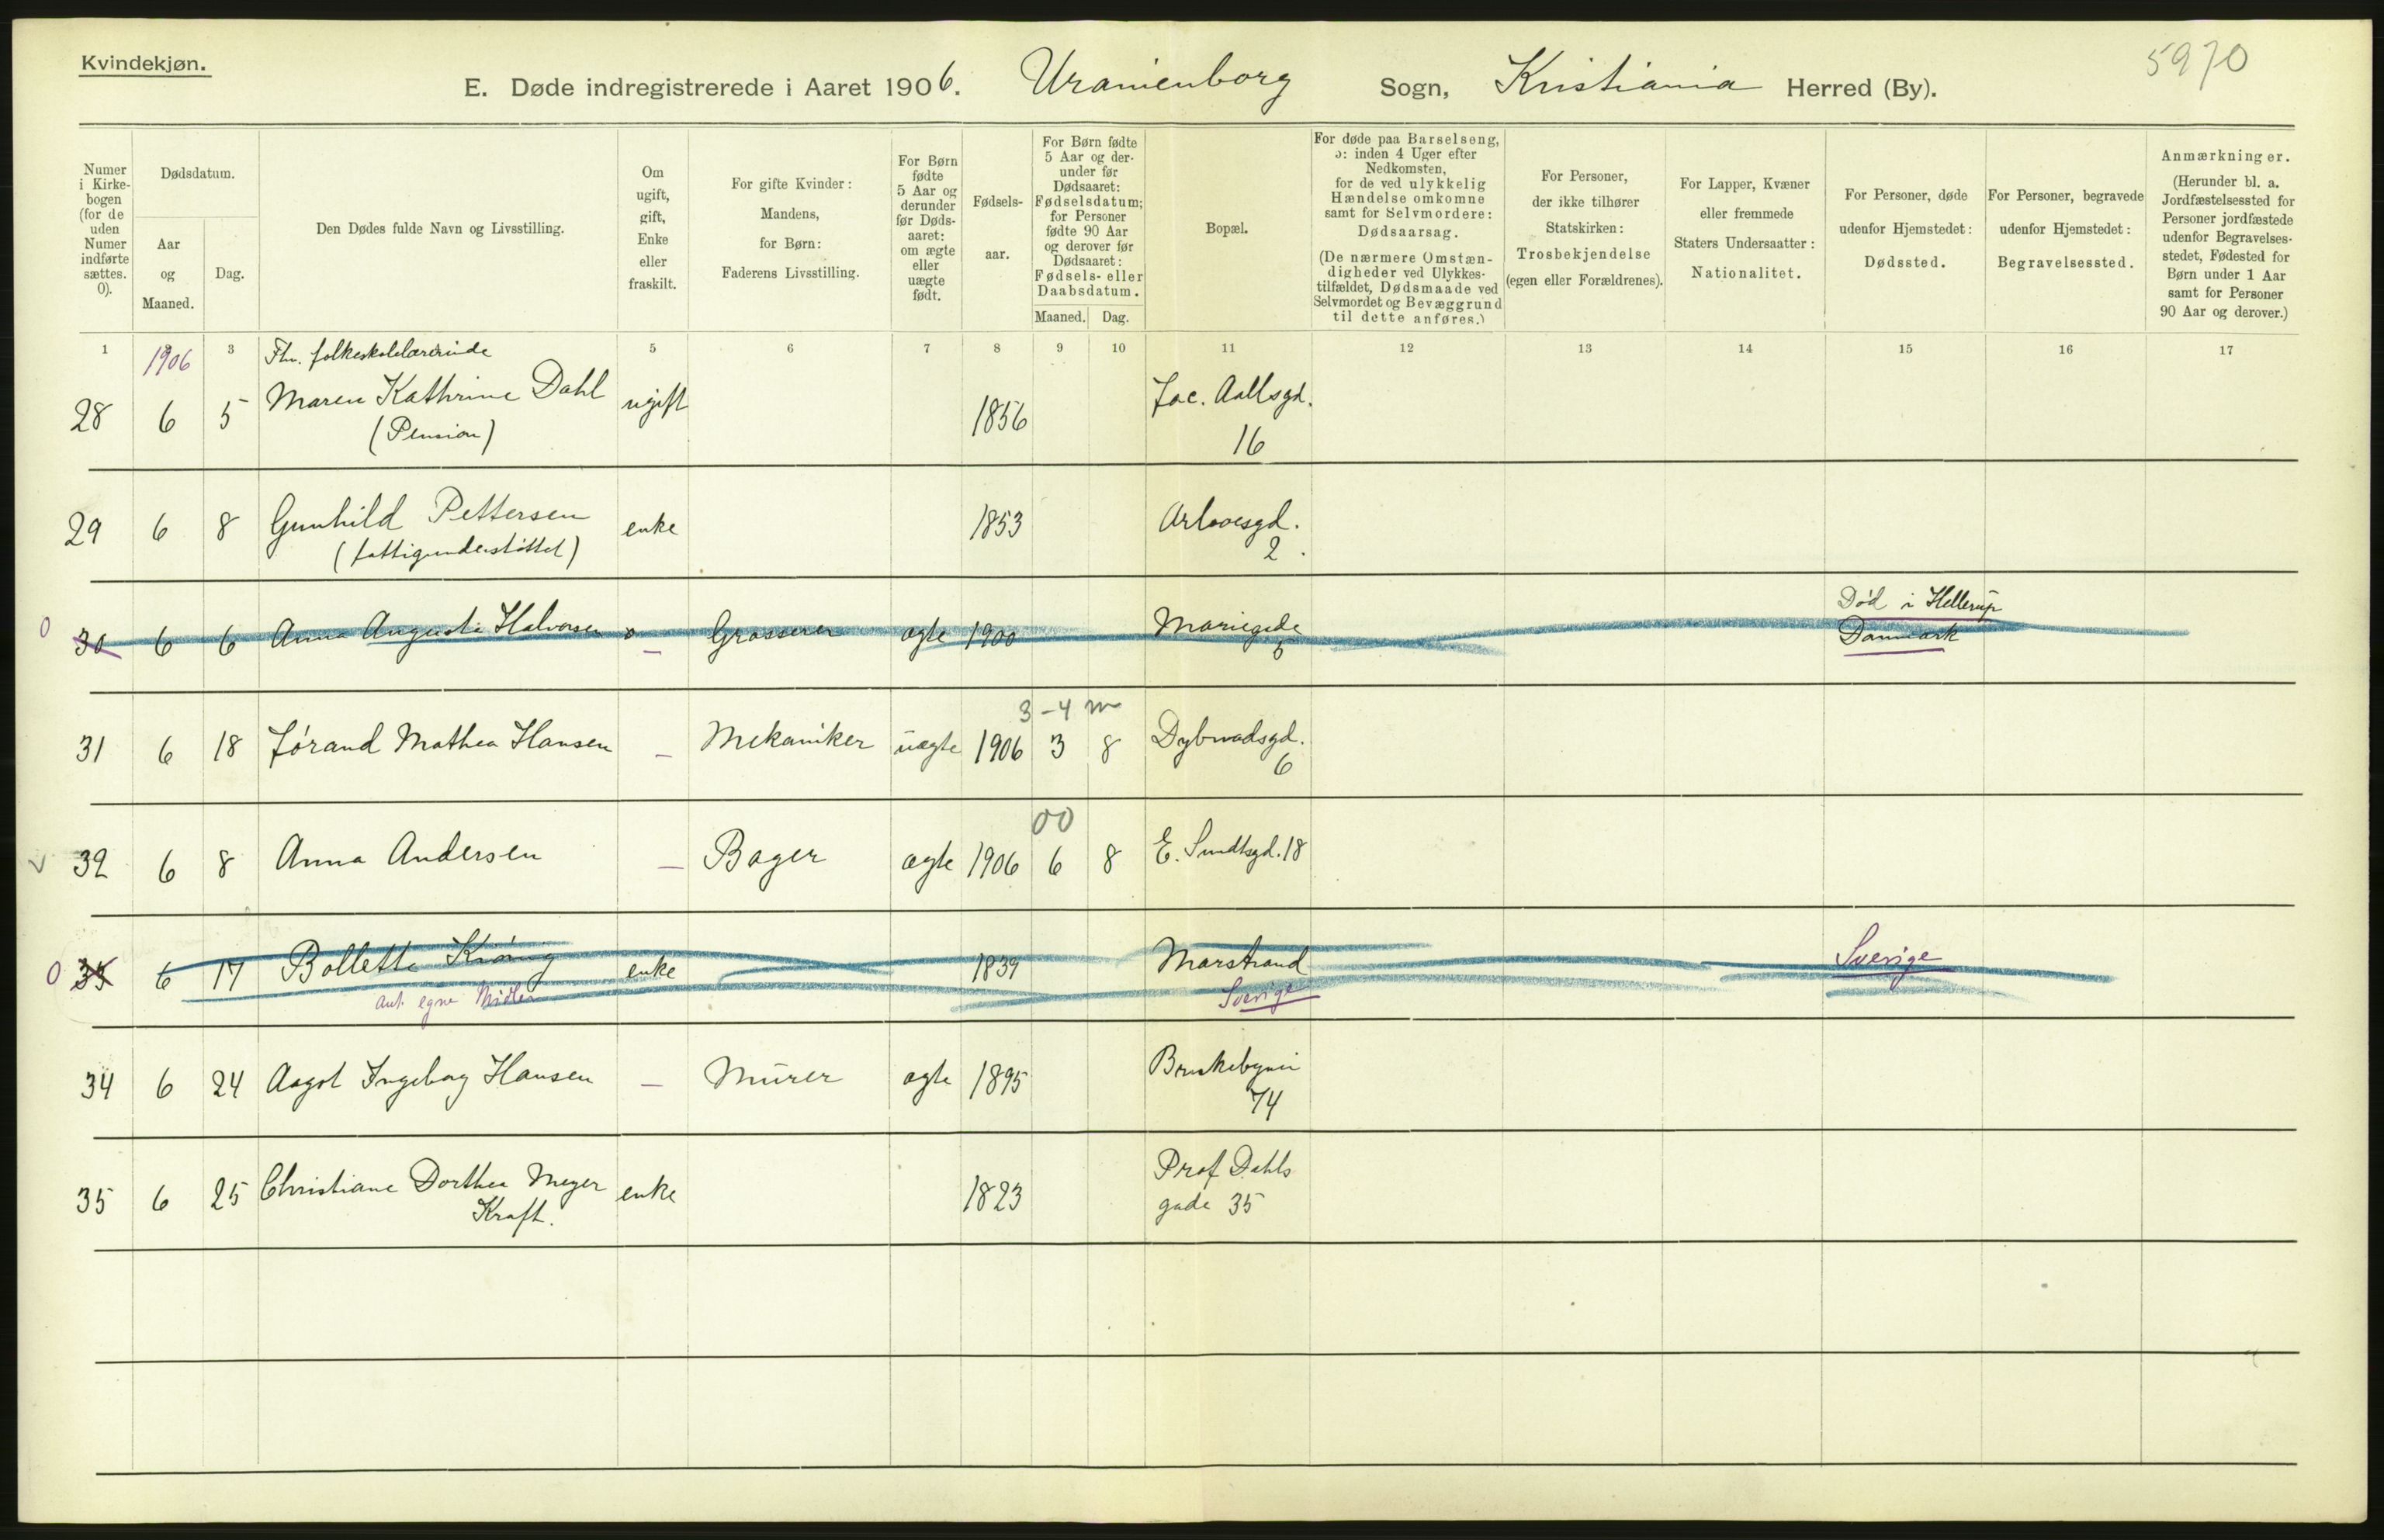 Kvindekjøn.
5970
E. Døde indregistrerede i Aaret 1906. Uranienborg Sogn, Kristiania Herred (By).
Numer i Kirke-bogen (for de uden Numer indførte sættes. 0).
Dødsdatum.
Aar og Maaned.
Dag.
Den Dødes fulde Navn og Livsstilling.
Om ugift, gift, Enke eller fraskilt.
For gifte Kvinder: Mandens, for Børn: Faderens Livsstilling.
For Børn fødte 5 Aar og derunder før Døds-aaret: om ægte eller uægte født.
Fødsels-aar.
For Børn fødte 5 Aar og der-under før Dødsaaret: Fødselsdatum; for Personer fødte 90 Aar og derover før Dødsaaret: Fødsels- eller Daabsdatum.
Maaned. Dag.
Bopæl.
For døde paa Barselseng, ɔ: inden 4 Uger efter Nedkomsten, for de ved ulykkelig Hændelse omkomne samt for Selvmordere: Dødsaarsag.
(De nærmere Omstæn-digheder ved Ulykkes-tilfældet, Dødsmaade ved Selvmordet og Bevæggrund til dette anføres.)
For Personer, der ikke tilhører Statskirken: Trosbekjendelse (egen eller Forældrenes).
For Lapper, Kvæner eller fremmede Staters Undersaatter: Nationalitet.
For Personer, døde udenfor Hjemstedet: Dødssted.
For Personer, begravede udenfor Hjemstedet: Begravelsessted.
Anmærkninger.
(Herunder bl. a. Jordfæstelsessted for Personer jordfæstede udenfor Begravelses-stedet, Fødested for Børn under 1 Aar samt for Personer 90 Aar og derover.)
1 3 5 6 7 8 9 10 11 12 13 14 15 16 17
1906 Fhv. folkeskolelærerinde
28 6 5 Maren Kathrine Dahl ugift 1856 Jac. Aallsgd.
(Pension) 16
29 6 8 Gunhild Pettersen enke 1853 Arbosgd.
(fattigunderstøttet) 2.
Død i Hellerup
0 30 6 6 Anna Augusta Halvorsen o Grosserer ægte 1900 Mariegade
5 Danmark
3-4 m
31 6 18 Jørand Mathea Hansen – Mekaniker uægte 1906 3 8 Dybwadsgd.
6
00
v 32 6 8 Anna Andersen – Bager ægte 1906 6 8 E. Sundtsgd. 18
0 33 6 17 Bollette enke 1839 Marstrand Sverige
ant. egne Midler Sverige
34 6 24 Aagot Ingeborg Hansen – Murer ægte 1895 Briskebyvei
74
35 6 25 Christiane Dorthea Meyer enke 1823 Prof Dahls
Kraft. gade 35